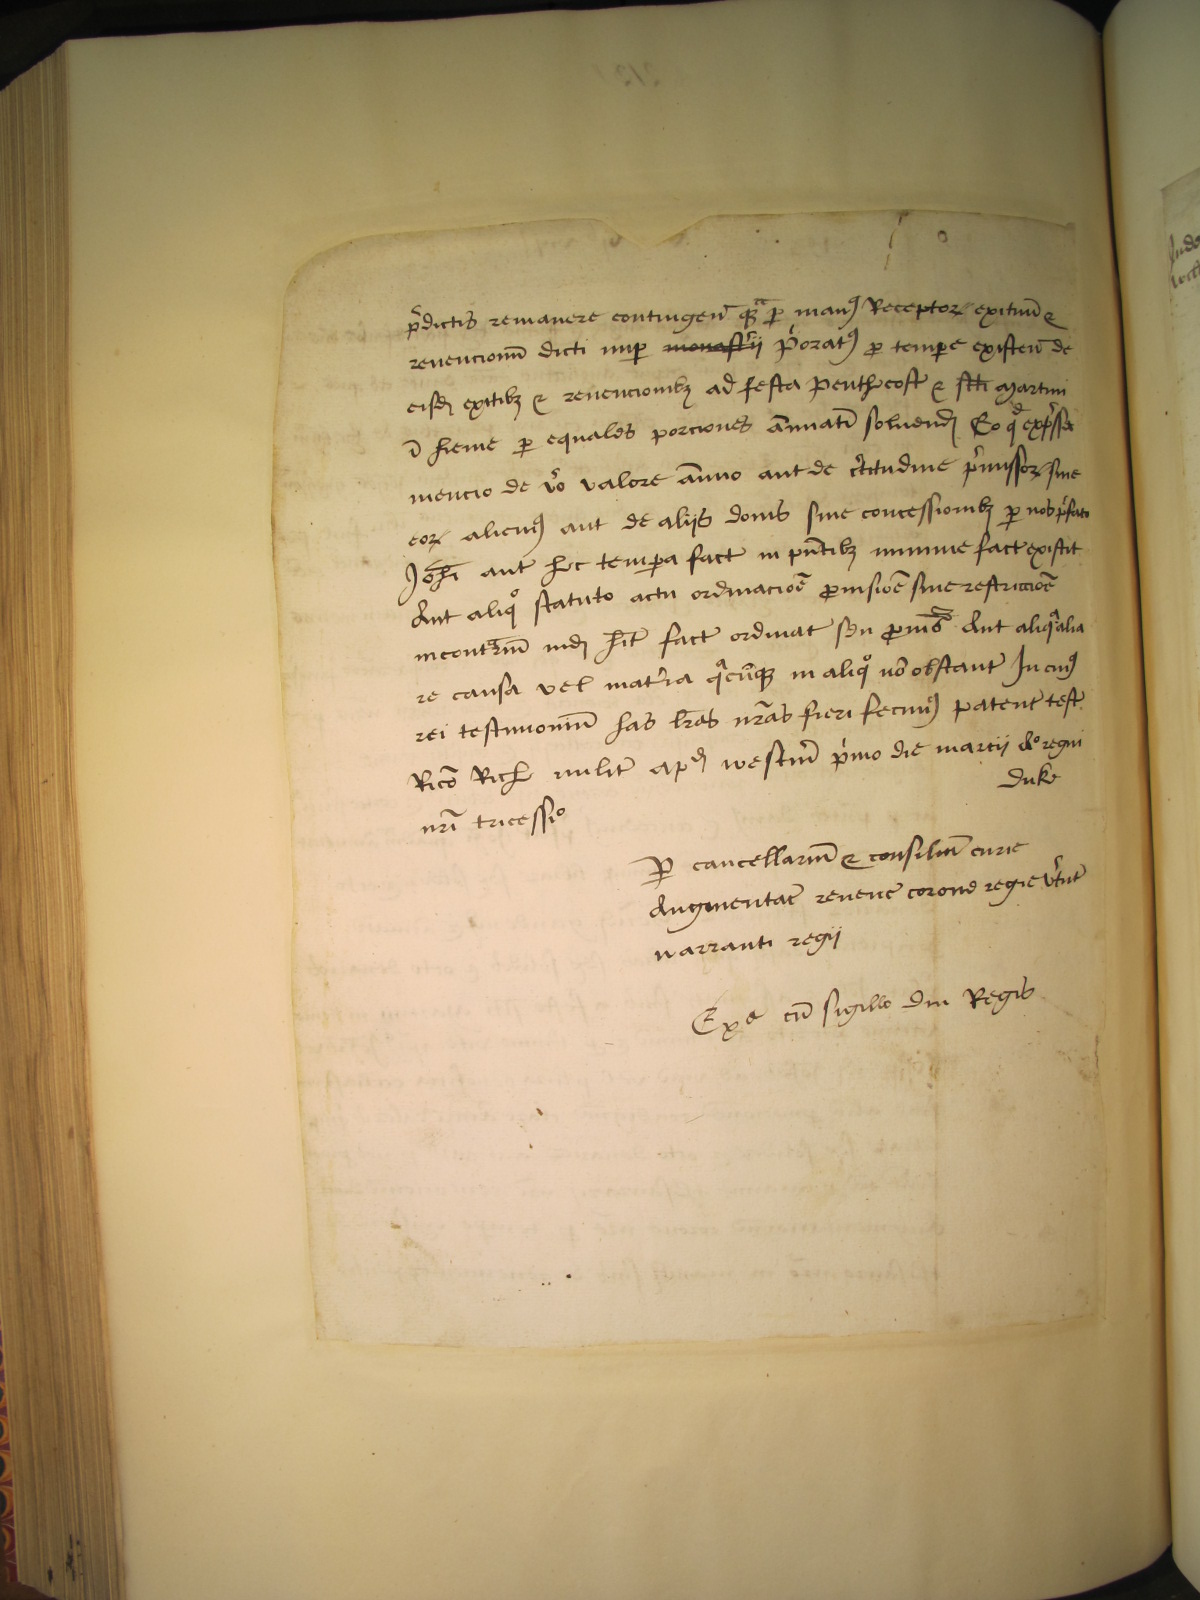 p̄dictis remanere contingen̄ qͣ p manꝰ Receptoꝝ exituū &
revencionū dicti nup monastʼii pʼoratꝰ p tempe existen̄ de
eisdꝫ exitibꝫ & revencionibꝫ ad festa penthecost & sc̄ti Martini
ī hieme p equales porciones ānuatī soluendꝫ Eo qᵈ exp̄ssa
mencio de vʼo valore ānuo aut de cʼtitudine pʼmissoꝝ sive
eoꝝ alicuiꝰ aut de alijs donis sive concessionibꝫ p nos pʼfato
Joh̄i ante hec tempa fact in pn̄tibꝫ minime fact existit
Aut aliqͦ statuto actu ordinacioē pvisioē sive restriccioē
incontrariū indꝫ hit fact ordinat seu pvis Aut aliqͣ alia
re causa vel matʼia qͣcūqꝫ in aliqͦ nō obstante In cuiꝰ
rei testimoniū has lr̄as nr̄as fieri fecimꝰ patentes test
Ricō Rich milite apᵈ westm̄ pʼmo die marcij Aº regni
nr̄i tricessiº
Duke
P cancellariū & consiliū curie
Augmentac revenc corone regie vʼtute
warranti regij
Exᵃ cū sigillo dn̄i Regis